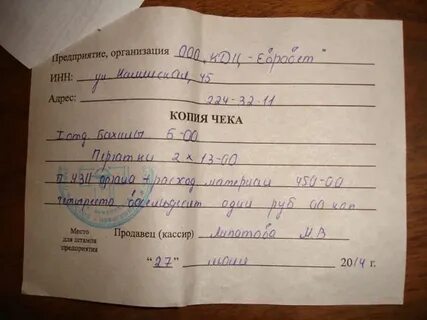 Предприятие, организация ООО „КДЦ - Евросет"
ИНН: ул Нагинская, 45
Адрес: 224-32-11
КОПИЯ ЧЕКА
I отд. Бахилы 6-00
Перчатки 2 х 13-00
расход. материал 450-00
четыреста восемьдесят один руб 00 коп
Место
для штампа
предприятия
Продавец (кассир) М В
"27" июня 2014 г.